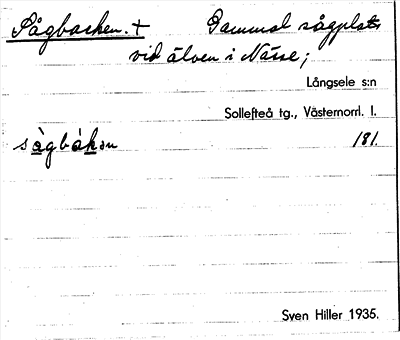 Sågbacken. + Gammal sågplats
vid älven i Nässe;
Långsele s:n
Sollefteå tg., Västernorrl. l.
sågbákən 181.
Sven Hiller 1935.